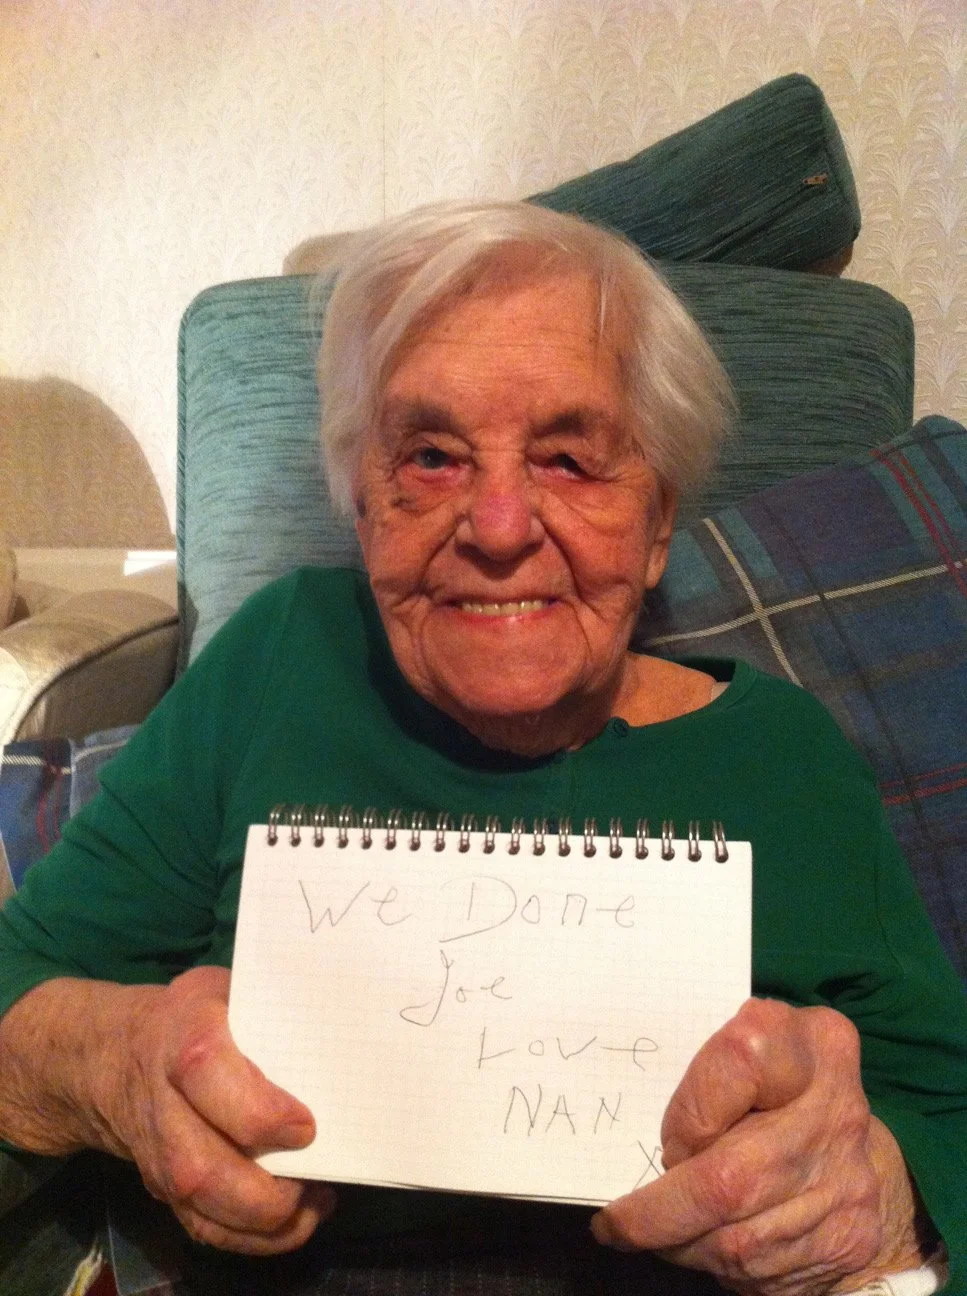 We Done
Joe
Love
NAN
X